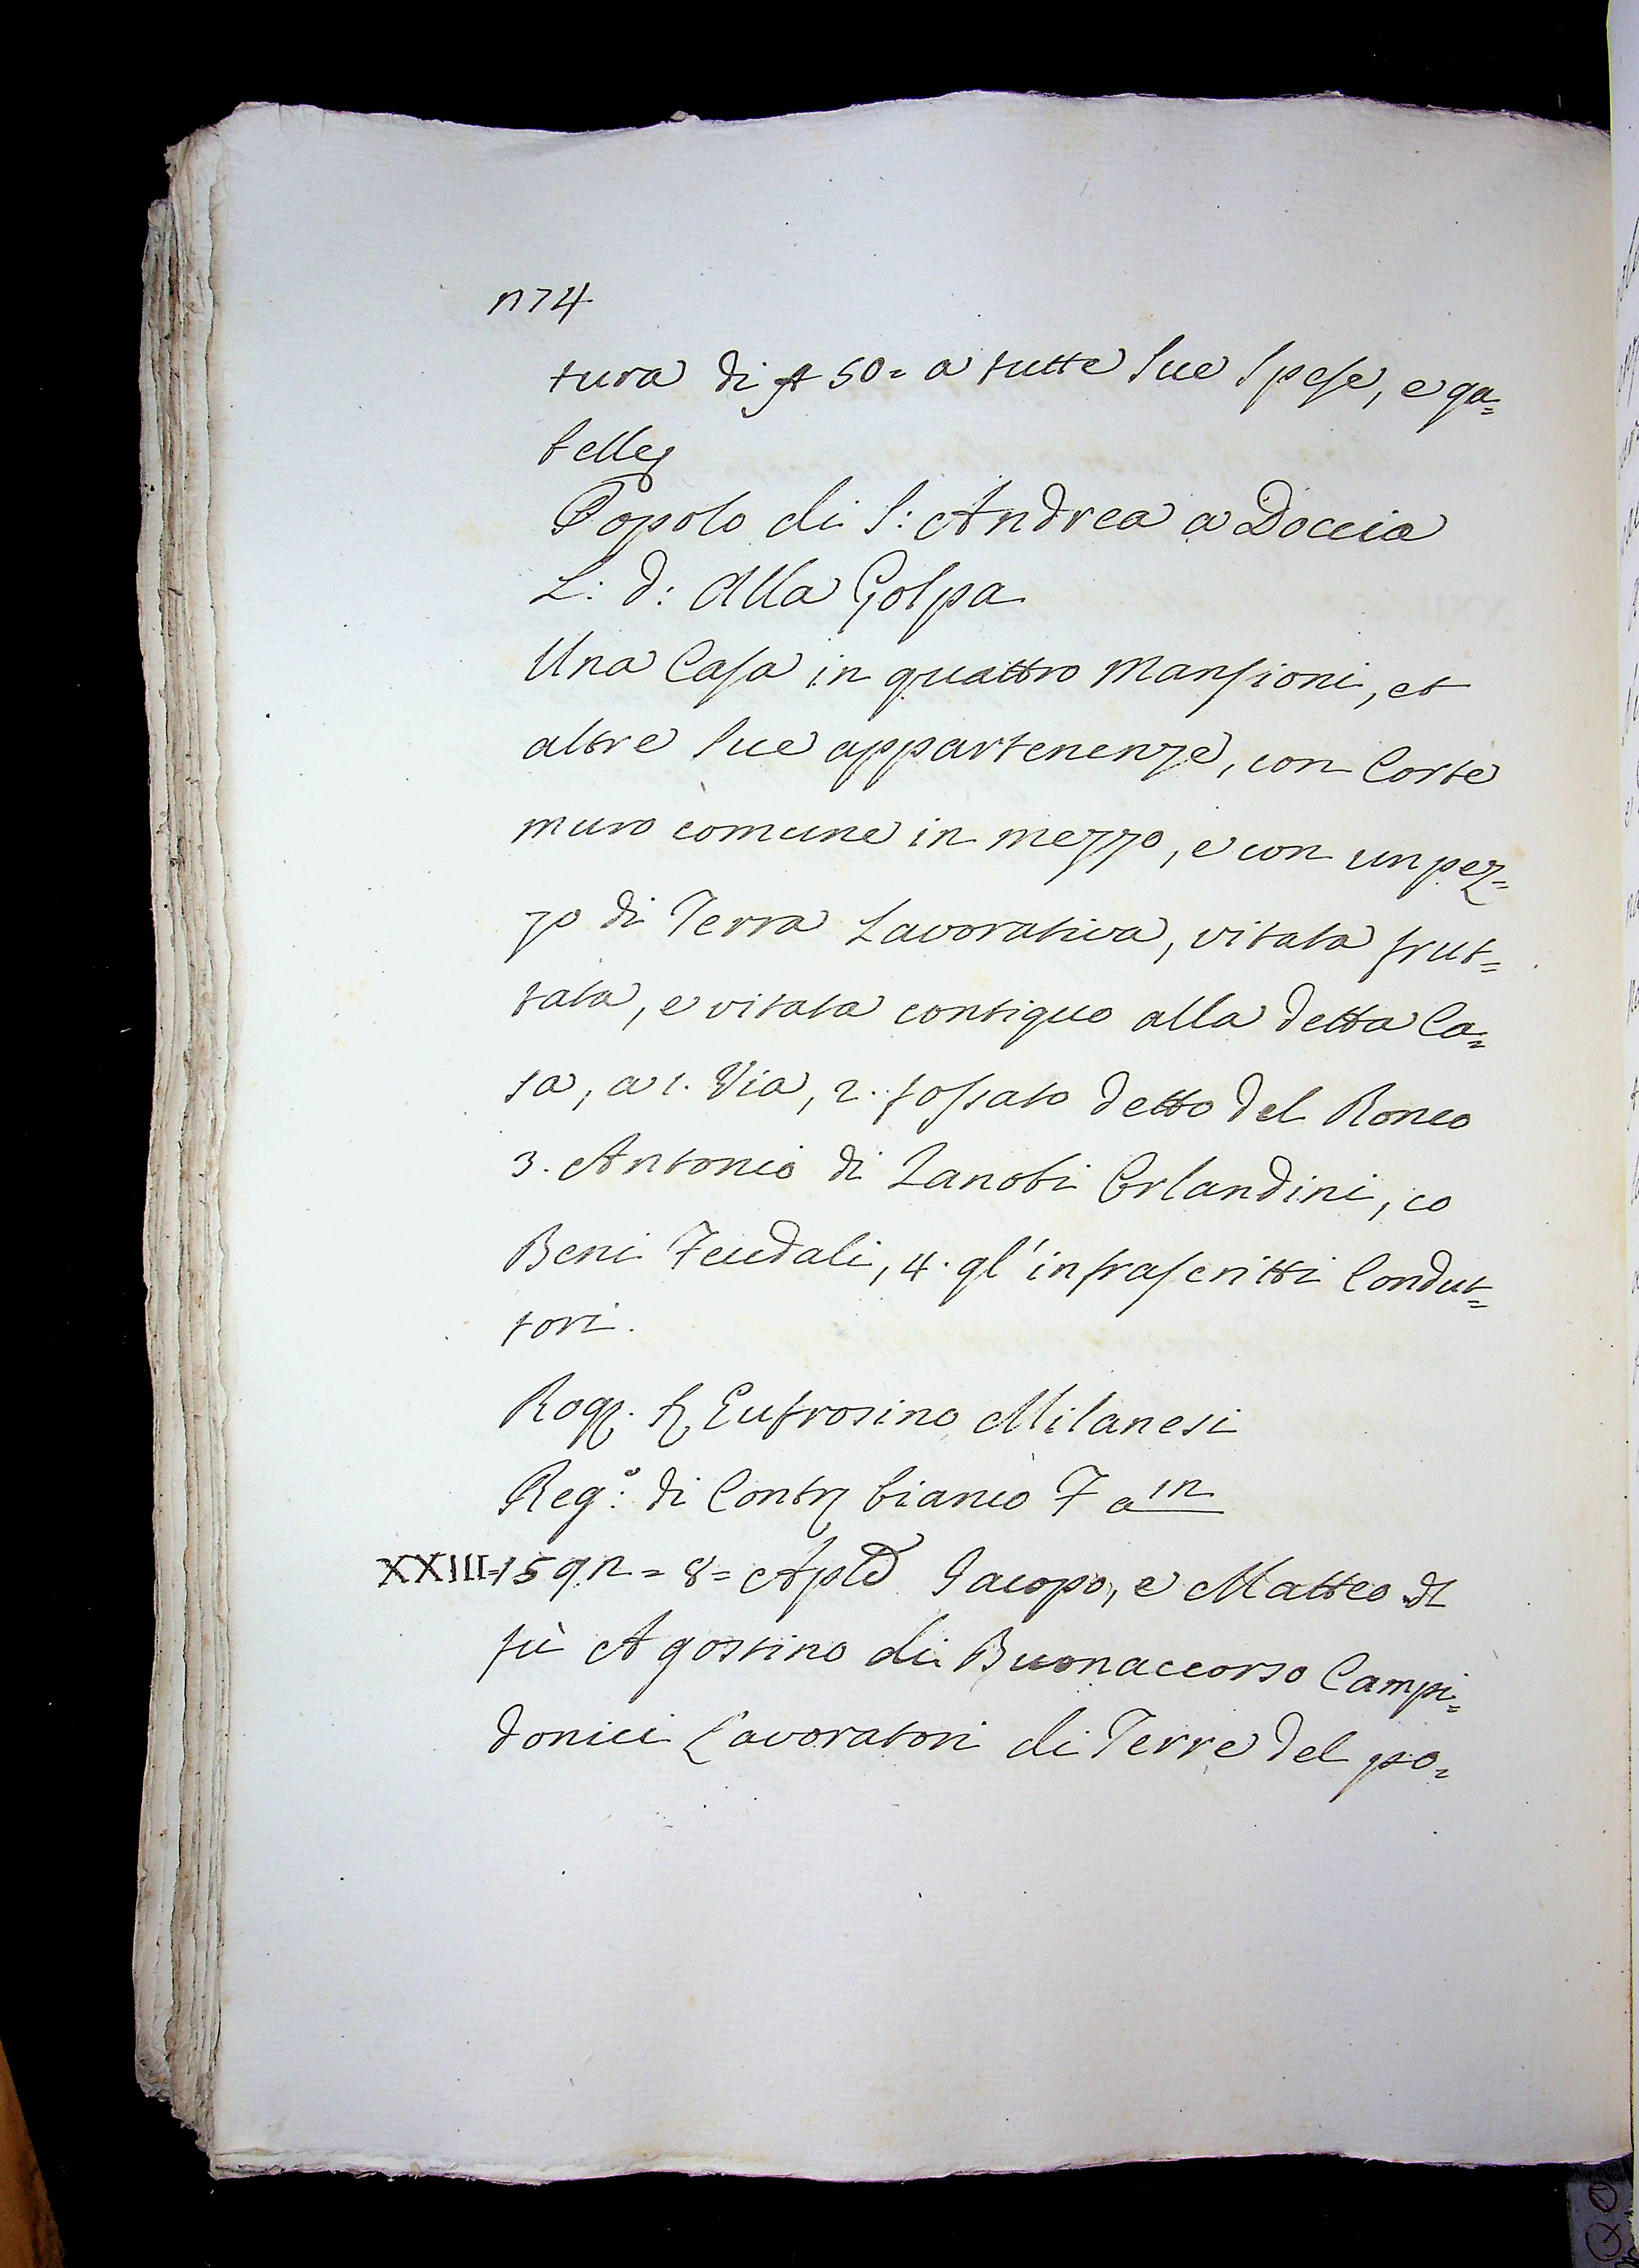 274
tura di ƒ 50= a tutte sue spese, e ga=
belle
Popolo di S: Andrea a Doccia
L: d: Alla Golpa
Una Casa in quattro Mansioni, et
altre sue appartenenze, con Corte
muro comune in mezzo, e con un pez=
zo di Terra Lavorativa, vitata frut=
tata, e vitata contiguo alla detta Ca=
sa, a 1. Via, 2. fossato detto del Ronco
3. Antonio di Zanobi Orlandini, co
Beni Feudali, 4. gl'infrascritti Condut=
tori.
Rog. Eufrosino Milanesi
Reg.º di Contr bianco F a 12
XXIII=1592=8= Aple Jacopo, e Matteo di
fù Agostino di Buonaccorso Campi=
donici Lavoratori di Terre del po=